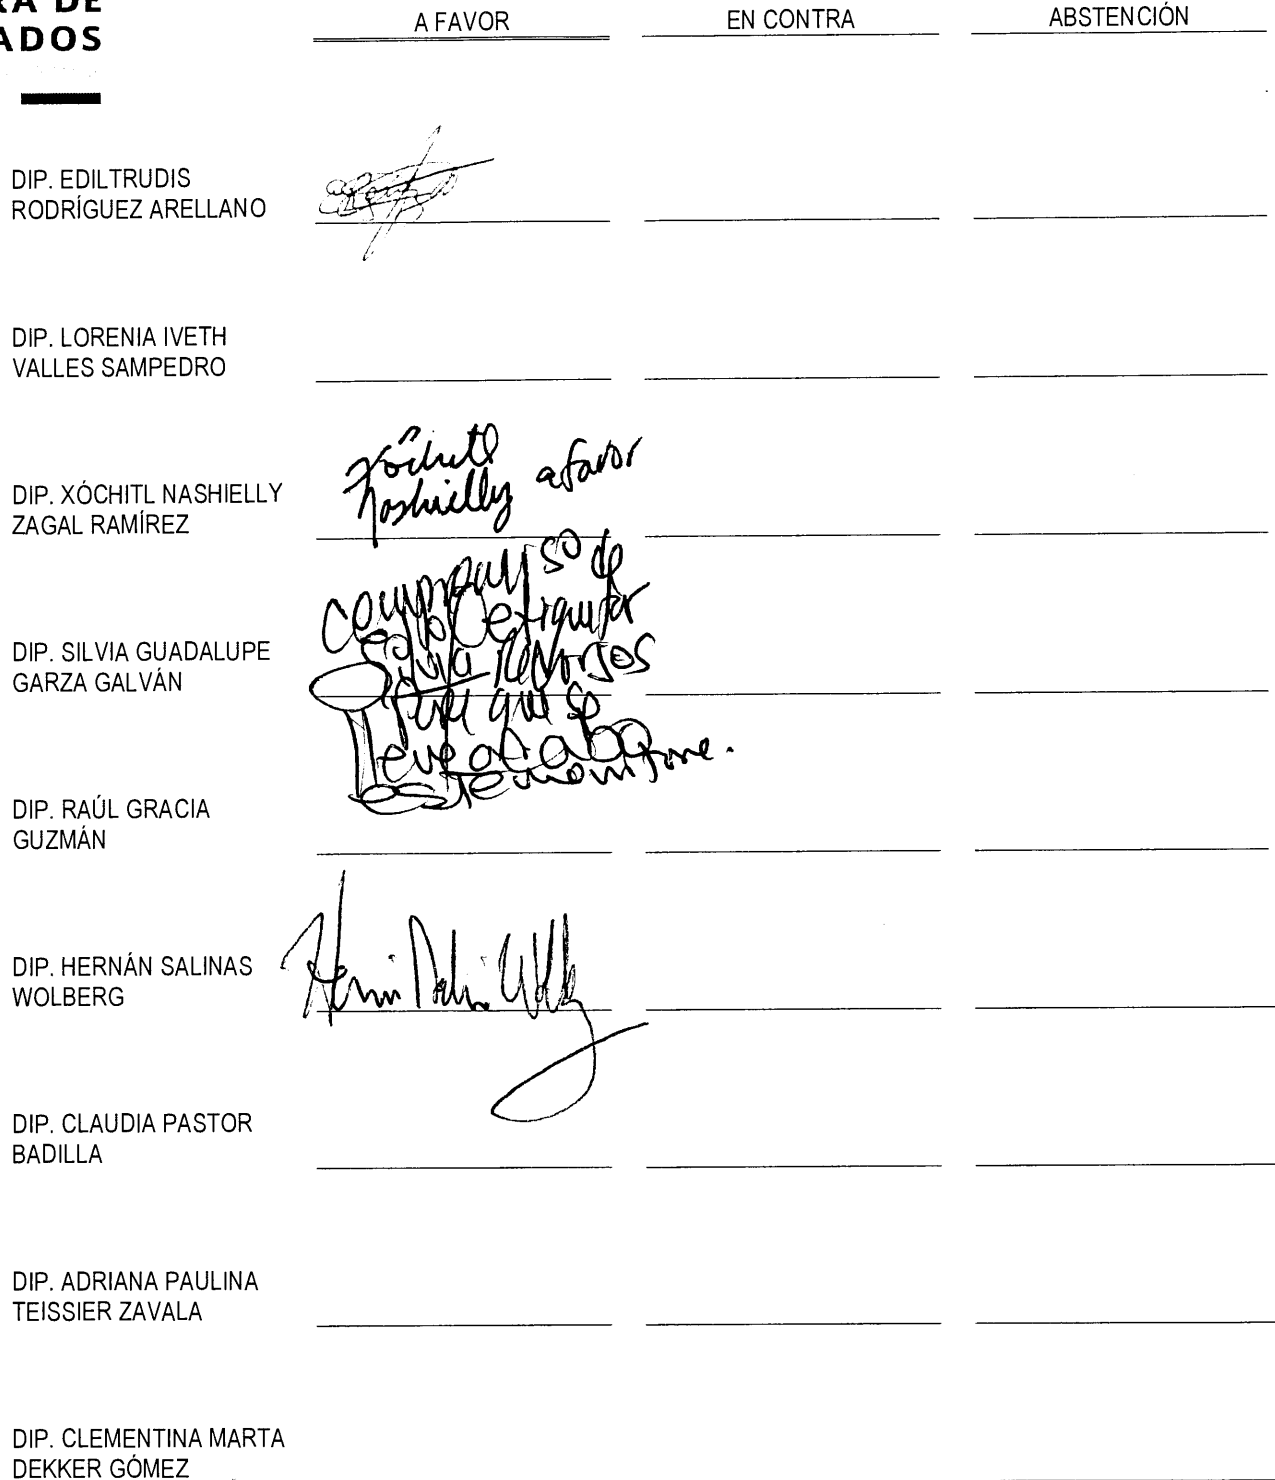 RA DE
ADOS
A FAVOR EN CONTRA ABSTENCIÓN
DIP. EDILTRUDIS
RODRÍGUEZ ARELLANO
DIP. LORENIA IVETH
VALLES SAMPEDRO
Xóchitl
Nashielly a favor
DIP. XÓCHITL NASHIELLY
ZAGAL RAMÍREZ
compromiso de
etiquetar
recursos
que se
lleve a cabo
este
DIP. SILVIA GUADALUPE
GARZA GALVÁN
DIP. RAÚL GRACIA
GUZMÁN
DIP. HERNÁN SALINAS
WOLBERG
DIP. CLAUDIA PASTOR
BADILLA
DIP. ADRIANA PAULINA
TEISSIER ZAVALA
DIP. CLEMENTINA MARTA
DEKKER GÓMEZ